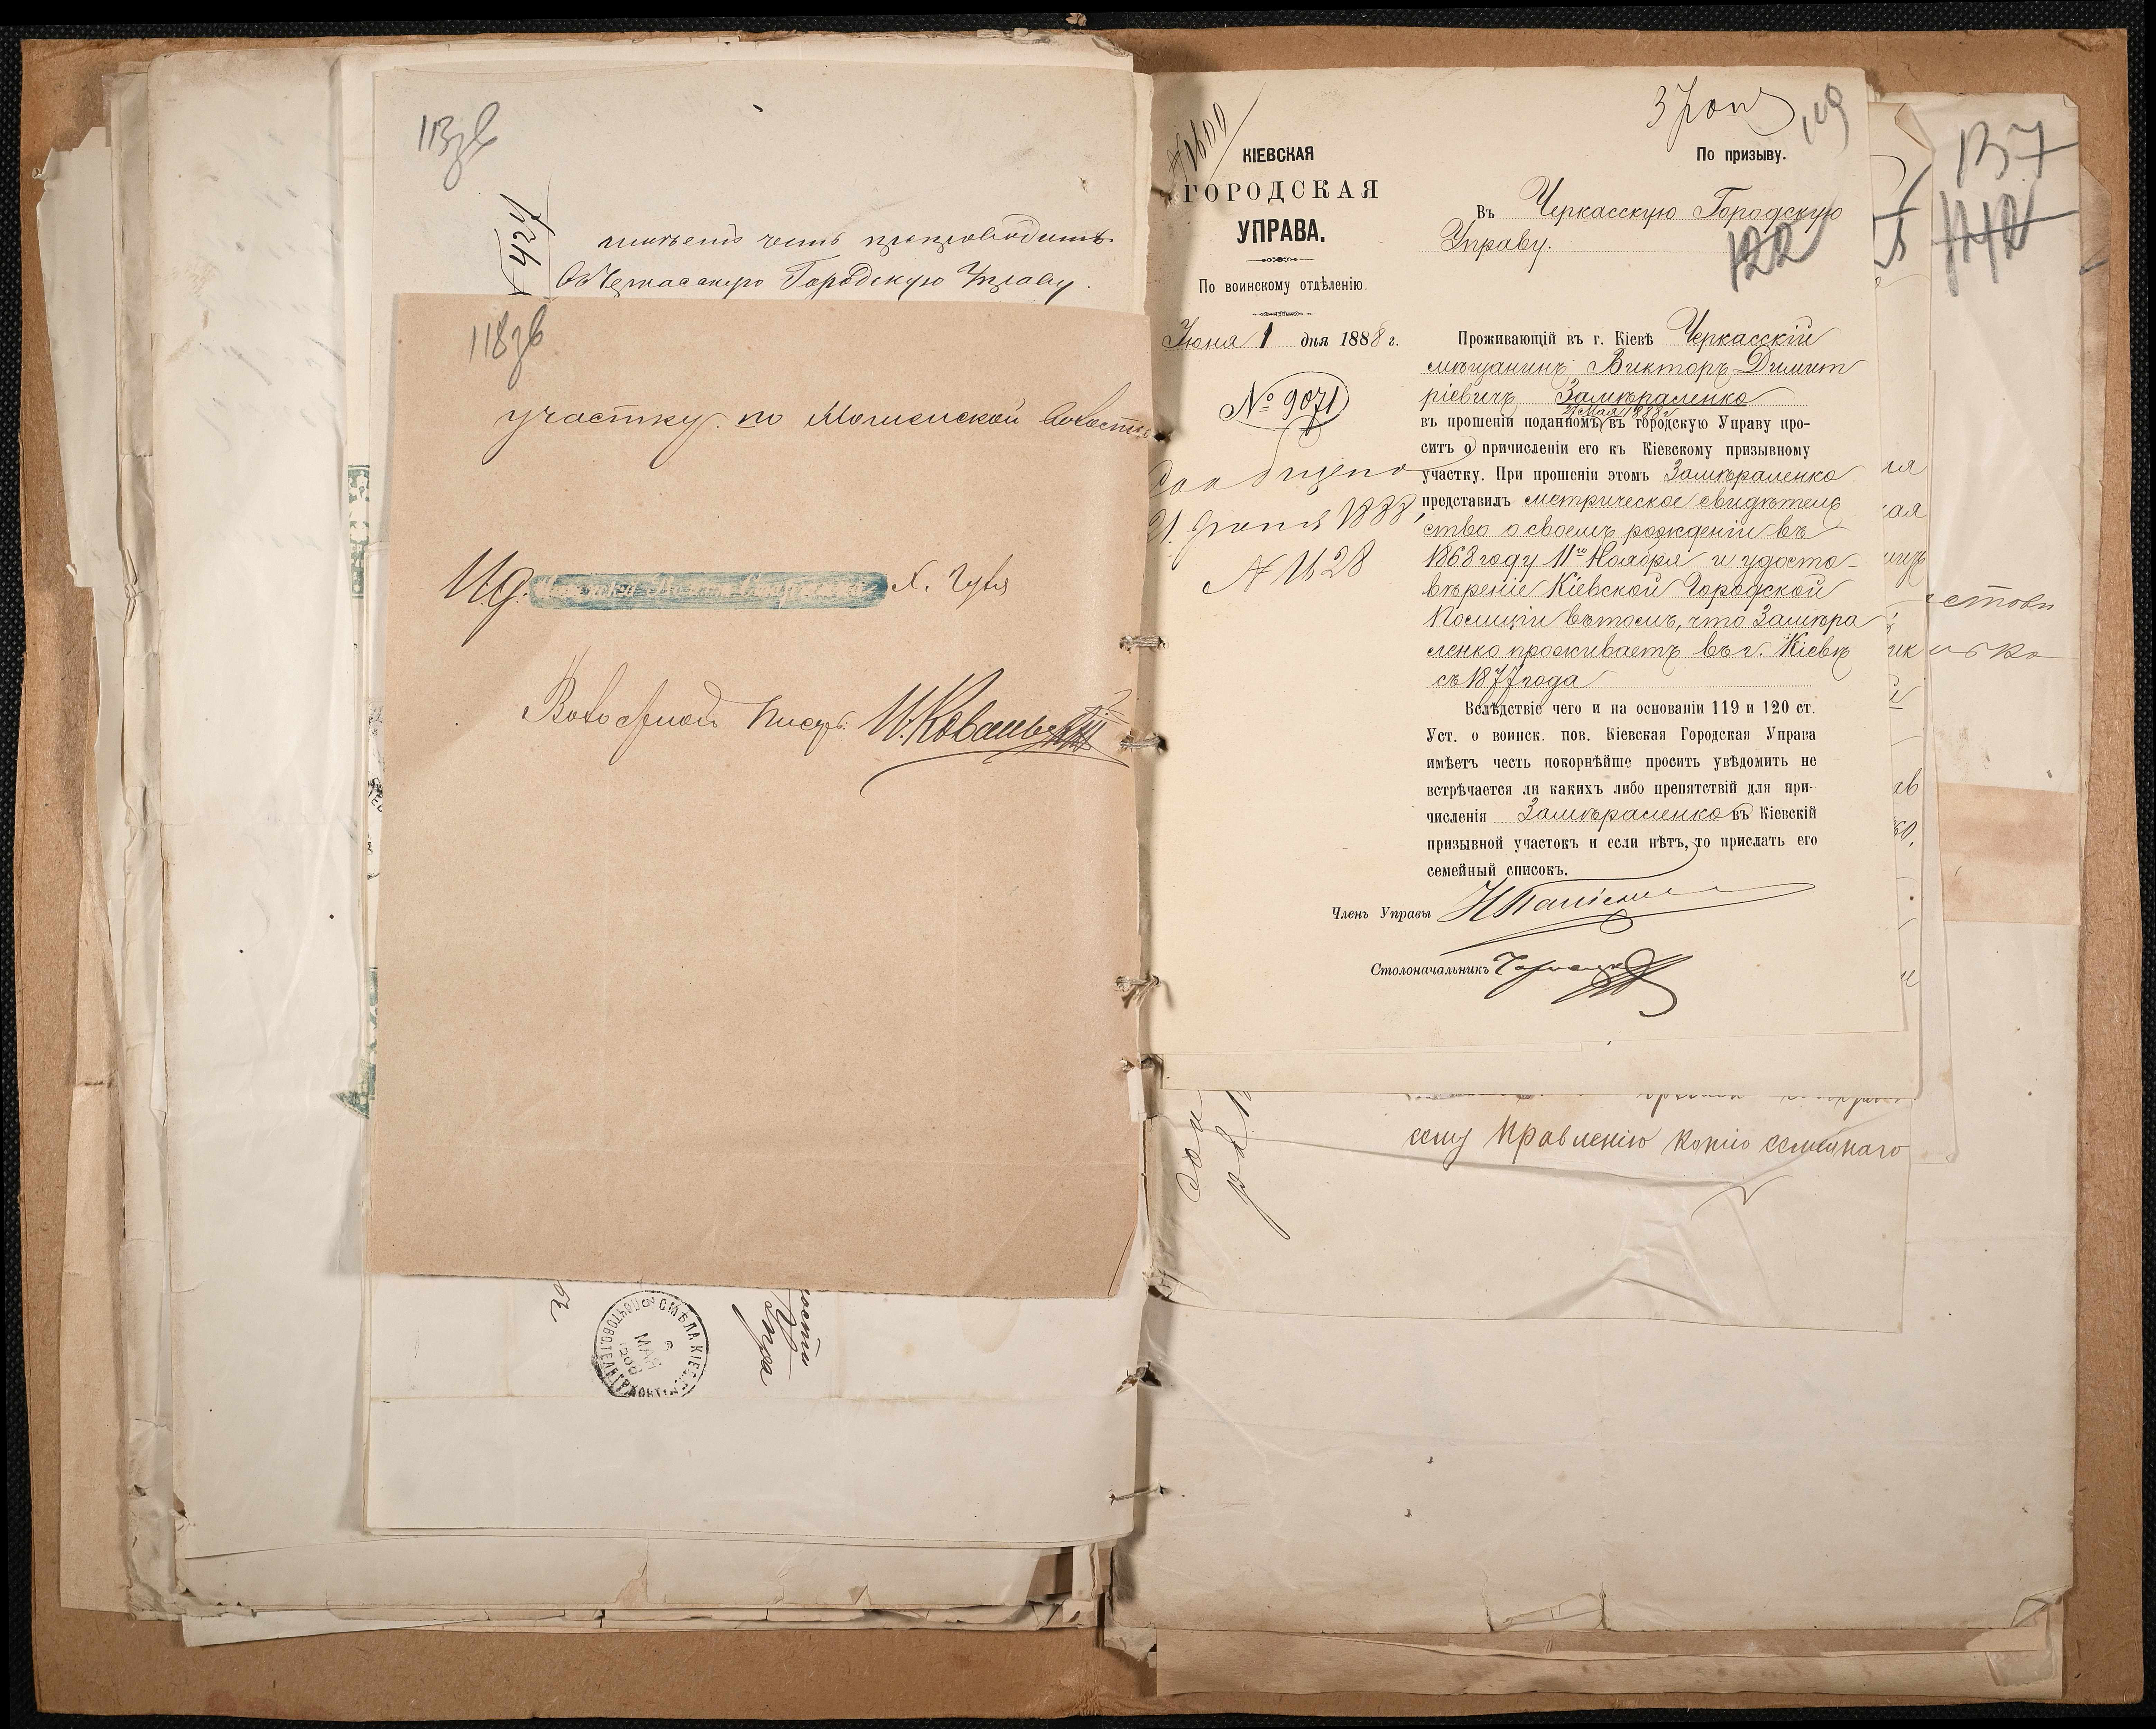 113зв
427
имѣетъ честь препроводить
въ Черкасскую Городскую Управу.
118зв
участку по Мошенской волости
И.д. Х. Губа
Волостной Писарь И. Коваль
СМѢЛА КІЕВ.
6
МАЯ
КІЕВСКАЯ
ГОРОДСКАЯ
УПРАВА.
По воинскому отдѣленію.
Іюня 1 дня 1888 г.
№ 9071
Сообщено
21 Іюня 1888
№ 1628
119
По призыву.
Въ Черкасскую Городскую
Управу.
122
Проживающій въ г. Кіевѣ Черкасскій
мѣщанинъ Викторъ Димит
ріевичъ Замѣраленко
27 Мая 1888 г
въ прошеніи поданномъ въ городскую Управу про-
ситъ о причисленіи его къ Кіевскому призывному
участку. При прошеніи этомъ Замѣраленко
представилъ метрическое свидѣтель
ство о своемъ рожденіи въ
1868 году 11го Ноября и удосто-
вѣреніе Кіевской Городской
Полиціи въ томъ, что Замѣра
ленко проживаетъ въ г. Кіевѣ
съ 1877 года
Вслѣдствіе чего и на основаніи 119 и 120 ст.
Уст. о воинск. пов. Кіевская Городская Управа
имѣетъ честь покорнѣйше просить увѣдомить не
встрѣчается ли какихъ либо препятствій для при-
численія Замѣраленко въ Кіевскій
призывной участокъ и если нѣтъ, то прислать его
семейный списокъ.
Членъ Управы
Столоначальникъ
сему Правленію копію семейнаго
137